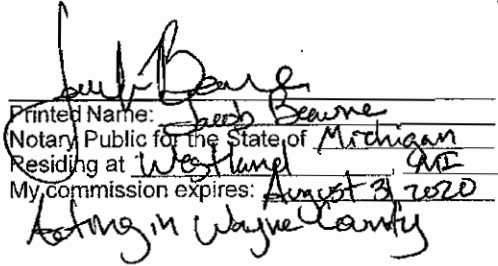 Printed Name: Jacob Beaune
Notary Public for the State of Michigan
Residing at Westland, MI
My commission expires: August 31 2020
Acting in Wayne County